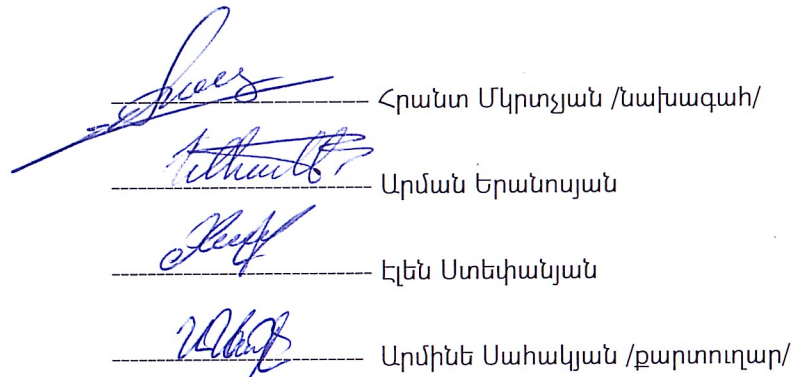 Հրանտ Մկրտչյան /նախագահ/
Արման Երանոսյան
Էլեն Ստեփանյան
Արմինե Սահակյան /քարտուղար/